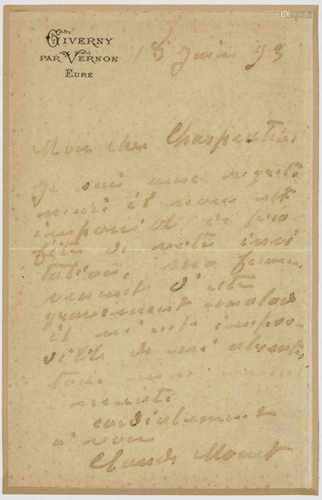 GIVERNY
PAR VERNON
EURE
18 Juin 93
Mon cher Charpentier
Je suis
il nous est
impossible de pro
fiter de votre invi
tation, ma femme
venant d'être
gravement malade
il m'est impos
sible de m'absenter
cordialement
à vous
Claude Monet